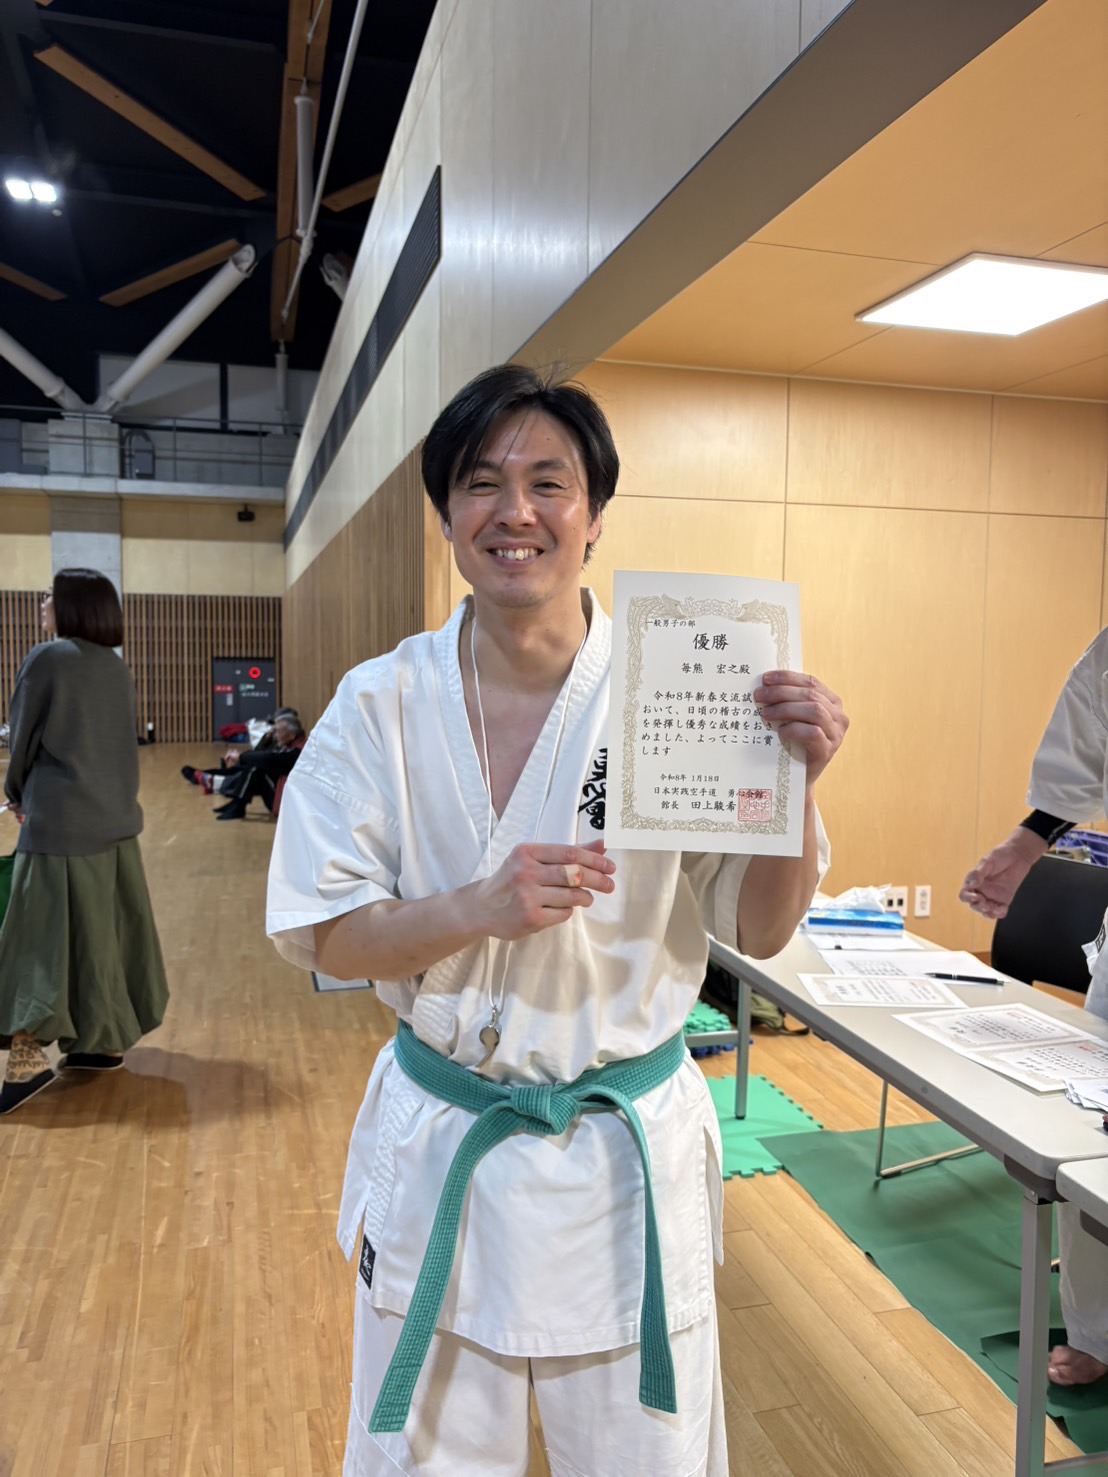 一般男子の部
優勝
毎熊 宏之殿
令和8年新春交流試
おいて、日頃の稽古の成
を発揮し優秀な成績をおさ
めました、よってここに賞
します
令和8年 1月18日
日本実践空手道 勇心会館
館長 田上駿希